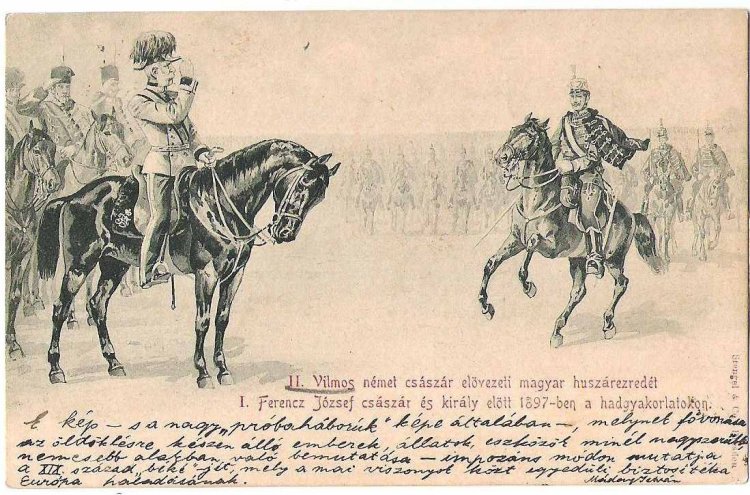 II. Vilmos német császár elővezeti magyar huszárezredét
I. Ferencz József császár és király előtt 1897-ben a hadgyakorlatokon.
E kép – s a nagy „próbaháborúk" képe általában –, melynek főváza
az öldöklésre készen álló emberek, állatok, eszközök minél nagyszerűbb
nemesebb alakban való bemutatása – impozáns módon mutatja
a XIX század „béké"-jét, mely a mai viszonyok közt egyedüli biztosítéka
Európa haladásának.
Madary István
Stengel &